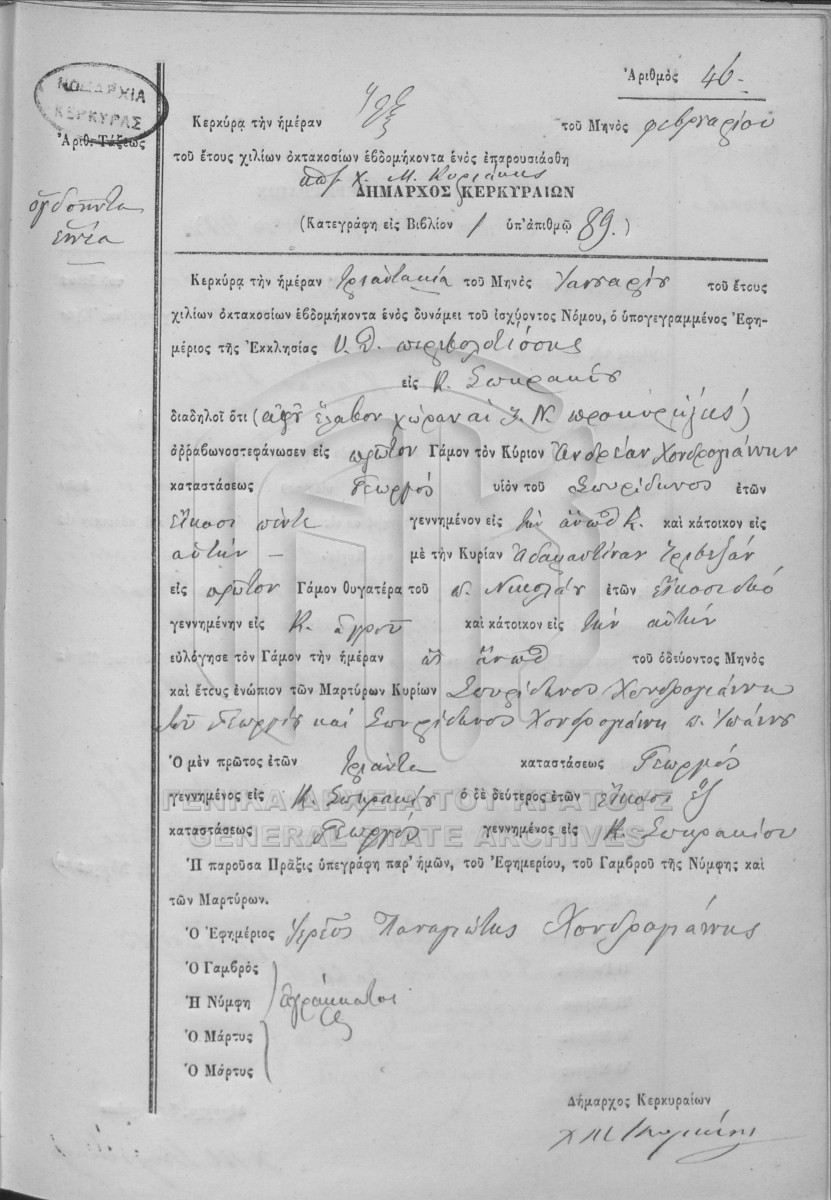 Ἀριθμὸς 46
ΝΟΜΑΡΧΙΑ
ΚΕΡΚΥΡΑΣ
Ἀριθ: Τάξεως
ὀγδοῆντα
ἐννέα
Κερκύρᾳ τὴν ἡμέραν τοῦ Μηνὸς φεβρυαρίου
τοῦ ἔτους χιλίων ὀκτακοσίων ἑβδομήκοντα ἑνὸς ἐπαρουσιάσθη
Χ. Μ. Κυριάκης
ΔΗΜΑΡΧΟΣ ΚΕΡΚΥΡΑΙΩΝ
(Κατεγράφη εἰς Βιβλίον 1 ὑπ' ἀπιθμῷ 89.)
Κερκύρᾳ τὴν ἡμέραν τριάντα μία τοῦ Μηνὸς Ἰανναρίυ τοῦ ἔτους
χιλίων ὀκτακοσίων ἑβδομήκοντα ἑνὸς δυνάμει τοῦ ἰσχύοντος Νόμου, ὁ ὑπογεγραμμένος Ἐφη-
μέριος τῆς Ἐκκλησίας Υ. Θ. περιβολιώσσης
εἰς Κ. Σωκρακίυ
διαδηλοῖ ὅτι (ἀφοῦ ἔλαβον χώραν αἱ 3. Ν. προκυρήξεις)
ἀῤῥαβωνοστεφάνωσεν εἰς πρῶτον Γάμον τὸν Κύριον Ἀνδρέαν Χονδρογιάννην
καταστάσεως Γεωργός υἱὸν τοῦ Σπυρίδωνος ἐτῶν
εἴκοσι πέντε γεννημένον εἰς τὴν ἄνωθ Κ. καὶ κάτοικον εἰς
αὐτήν – μὲ τὴν Κυρίαν Ἀδαμαντίναν
εἰς πρῶτον Γάμον θυγατέρα τοῦ π. Νικολάυ ἐτῶν εἴκοσι δυό
γεννημένην εἰς Κ. ἀγροῦ καὶ κάτοικον εἰς τὴν αὐτήν
εὐλόγησε τὸν Γάμον τὴν ἡμέραν ὡς ἄνωθ τοῦ ὁδεύοντος Μηνὸς
καὶ ἔτους ἐνώπιον τῶν Μαρτύρων Κυρίων Σπυρίδωνος Χονδρογιάννη
τοῦ Γεωργίυ καὶ Σπυρίδωνος Χονδρογιάννη π. Ἰωάννυ
Ὁ μὲν πρῶτος ἐτῶν τριάντα καταστάσεως Γεωργός
γεννημένος εἰς Κ. Σωκρακίυ ὁ δὲ δεύτερος ἐτῶν εἴκοσι ἕξ
ΓΕΝΙΚΑ ΑΡΧΕΙΑ ΤΟΥ ΚΡΑΤΟΥΣ
καταστάσεως Γεωργός γεννημένος εἰς Κ. Σωκρακίου
GENERAL STATE ARCHIVES
Ἡ παροῦσα Πρᾶξις ὑπεγράφη παρ' ἡμῶν, τοῦ Ἐφημερίου, τοῦ Γαμβροῦ τῆς Νύμφης καὶ
τῶν Μαρτύρων.
Ὁ Ἐφημέριος Ἱερεύς Παναγιώτης Χονδρογιάννης
Ὁ Γαμβρὸς
Ἡ Νύμφη ἀγράμματοι
Ὁ Μάρτυς
Ὁ Μάρτυς
Δήμαρχος Κερκυραίων
Χ Μ Κυριάκης